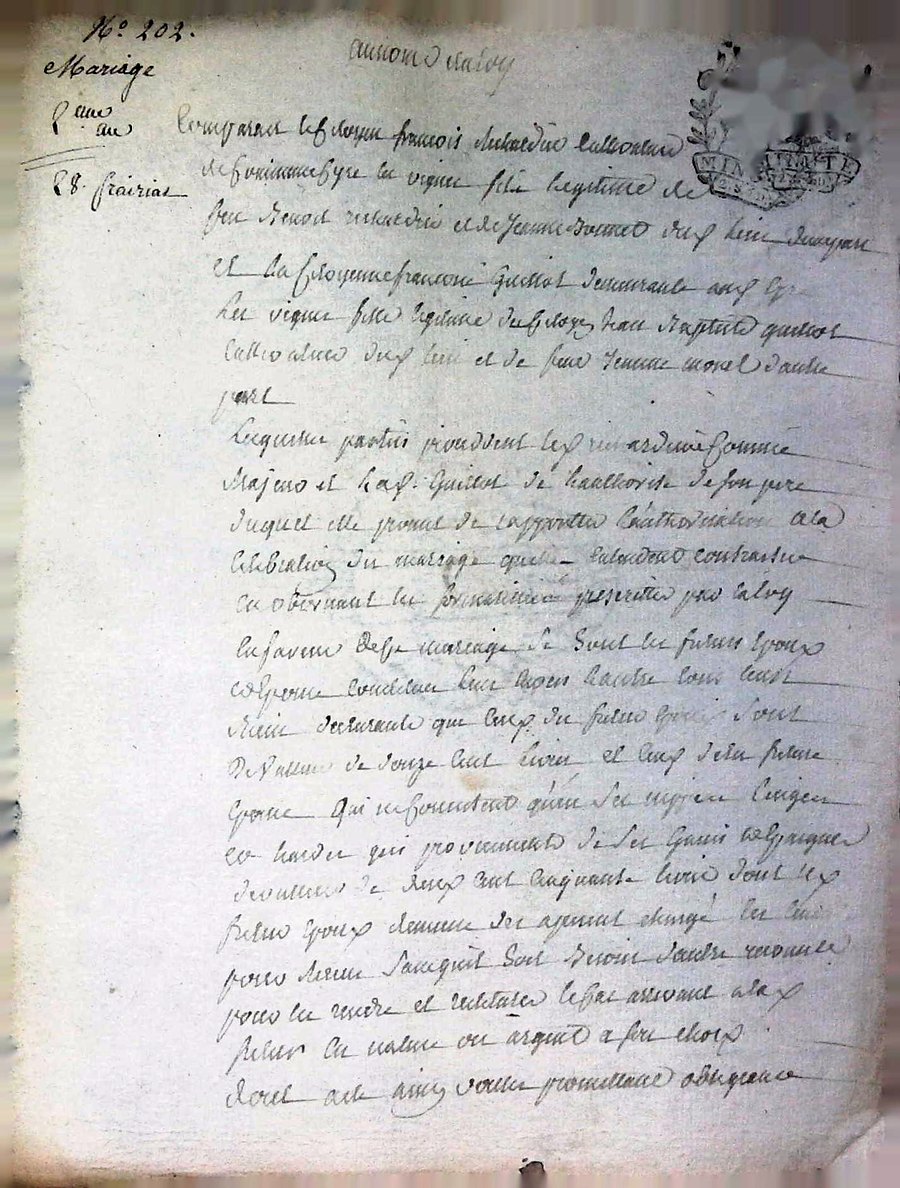 N.o 202.
Mariage
2eme
an
28. frairial
au nom de la loy
Comparait le Citoyen francois cultivateur
de les vignes fils legitime de
feu Benoit et de Jeanne Bonnet dune part
et la Citoyenne francoise Guillot demeurante
les vignes fille legitime du Citoyen Jean Baptiste guillot
cultivateur dud lieu et de feue Jeanne morel dautre
part
Lesquelles parties procedent led comme
Majeur et lad. Guillot de lauthorité de son pere
duquel elle promet de rapporter lauthorisation a la
celebration du mariage quils entendent contracter
en observant les formalités prescrittes par la loy
En faveur dud mariage se sont les futurs Epoux
et Epouse constitué leurs tous leurs
biens declarants que ceux du futur Epoux sont
de valleur de douze cent livres et ceux de la future
Epouse qui ne consistent quen ses nippes linges
et hardes qui proviennent de ses gains et Epargnes
de valleur de deux cent cinquante livres dont led
futur Epoux demeure des apresent chargé
sans quil soit besoin dautre
pour les rendre et restituer le cas arrivant a lad
future en nature ou argent a son choix
Dont acte ainsy voullu promettant obligeance